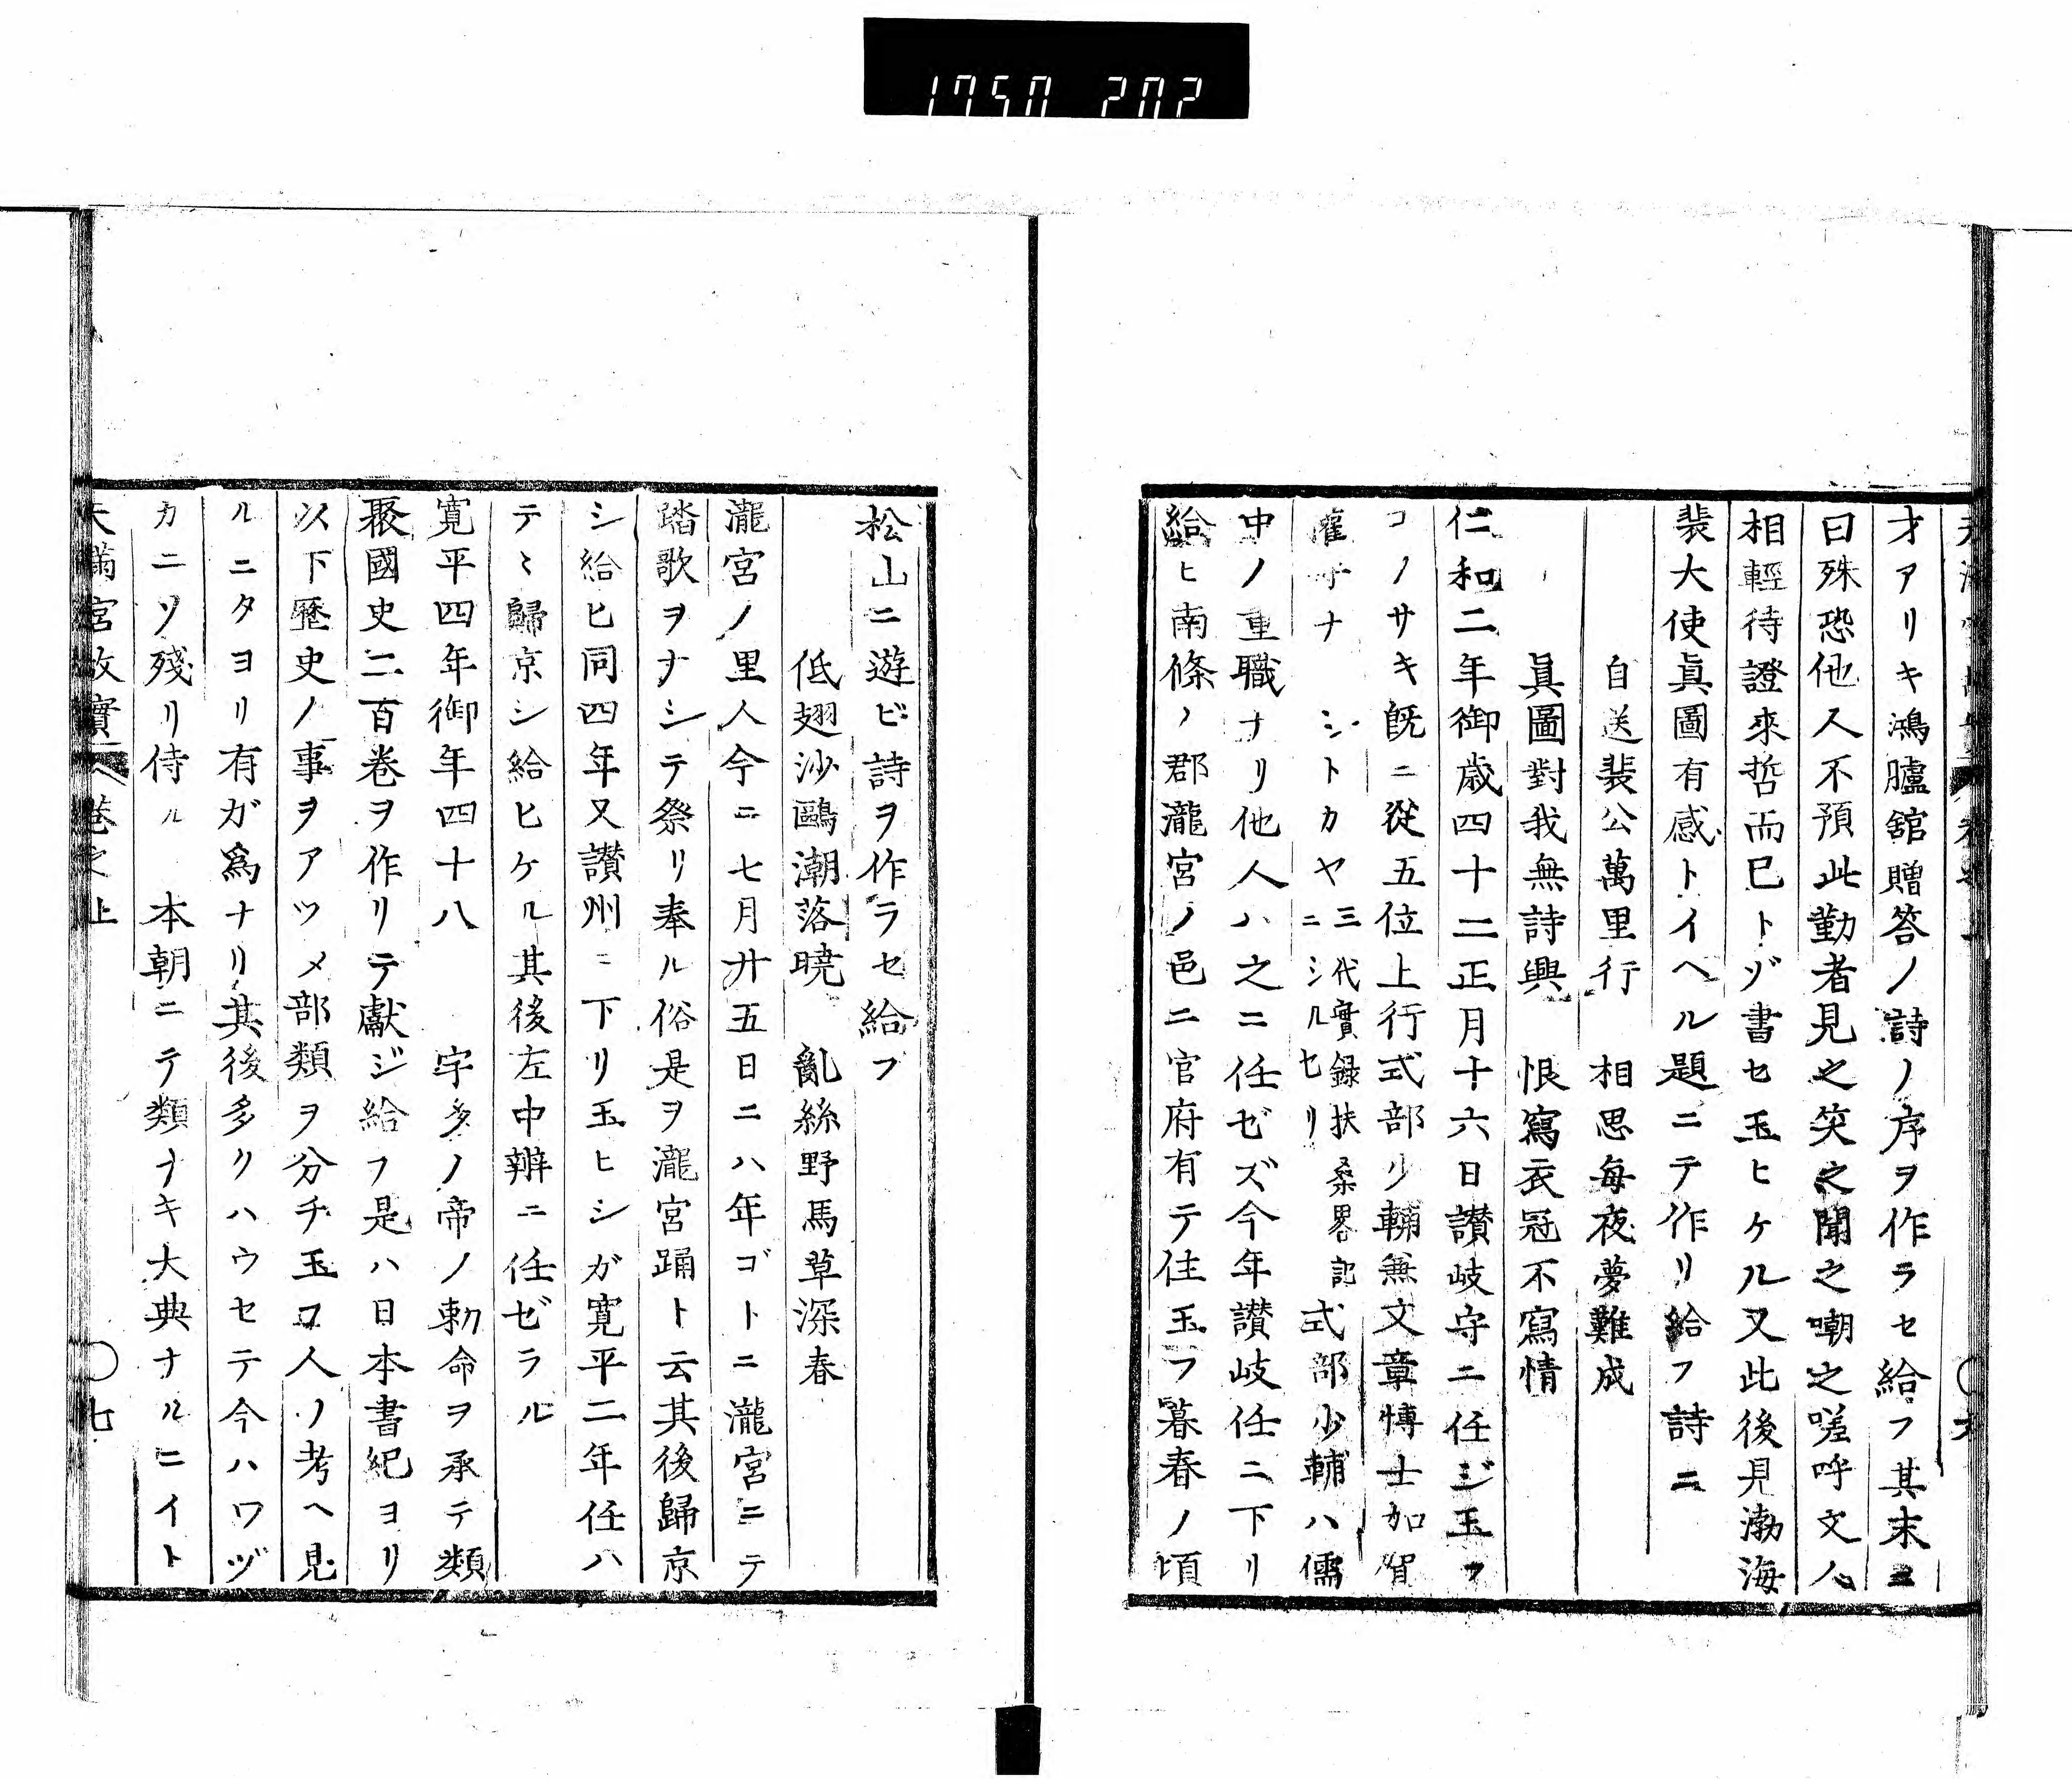 1750 202
才アリキ鴻臚舘贈答ノ詩ノ序ヲ作ラセ給フ其末ニ
曰殊恐他人不預此勤者見之笑之聞之嘲之嗟呼文人
相輕待證來哲而巳トゾ書セ玉ヒケル又此後見渤海
裴大使眞圖有感トイヘル題ニテ作リ給フ詩ニ
自送裴公萬里行　相思每夜夢難成
眞圖對我無詩興　恨寫衣冠不寫情
仁和二年御歳四十二正月十六日讃岐守ニ任ジ玉フ
コノサキ旣ニ從五位上行式部少輔兼文章博士加賀
權守ナ　シトカヤ三代實録扶桑畧記ニシルセリ式部少輔ハ儒
中ノ重職ナリ他人ハ之ニ任ゼズ今年讃岐任ニ下リ
給ヒ南條ノ郡瀧宮ノ邑ニ官府有テ住玉フ暮春ノ頃
松山ニ遊ビ詩ヲ作ラセ給フ
低翅沙鷗潮落曉　亂絲野馬草深春
瀧宮ノ里人今ニ七月廾五日ニハ年ゴトニ瀧宮ニテ
踏歌ヲナシテ祭リ奉ル俗是ヲ瀧宮踊ト云其後歸京
シ給ヒ同四年又讃州ニ下リ玉ヒシガ寛平二年任ハ
テヽ歸京シ給ヒケル其後左中辨ニ任ゼラル
寛平四年御年四十八　宇多ノ帝ノ勅命ヲ承テ類
聚國史二百卷ヲ作リテ獻ジ給フ是ハ日本書紀ヨリ
以下歷史ノ事ヲアツメ部類ヲ分チ玉フ人ノ考ヘ見
ルニタヨリ有ガ爲ナリ其後多クハウセテ今ハワヅ
カニソ殘リ侍ル　本朝ニテ類ナキ大典ナルニイト
天滿宮故實　卷之上　〇七